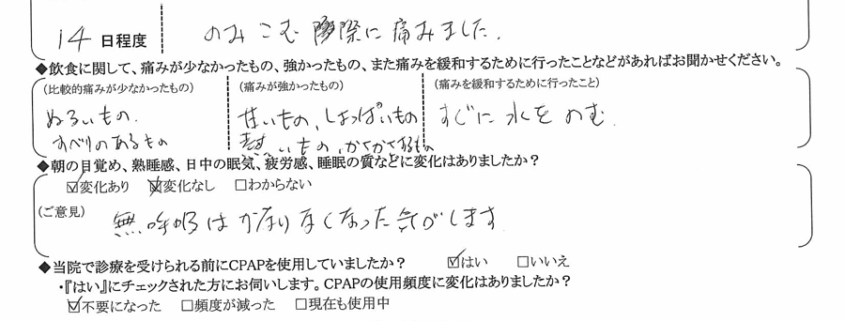 14 日程度 のみこむ際に痛みました.
◆飲食に関して、痛みが少なかったもの、強かったもの、また痛みを緩和するために行ったことなどがあればお聞かせください。
(比較的痛みが少なかったもの) (痛みが強かったもの) (痛みを緩和するために行ったこと)
ぬるいもの. 甘いもの、しょっぱいもの すぐに水をのむ
すべりのあるもの 熱いもの、かたかた
◆朝の目覚め、熟睡感、日中の眠気、疲労感、睡眠の質などに変化はありましたか?
☑変化あり ☑変化なし □わからない
(ご意見) 無呼吸はかなりなくなった気がします
◆当院で診療を受けられる前にCPAPを使用していましたか? ☑はい □いいえ
・『はい』にチェックされた方にお伺いします。CPAPの使用頻度に変化はありましたか?
☑不要になった □頻度が減った □現在も使用中